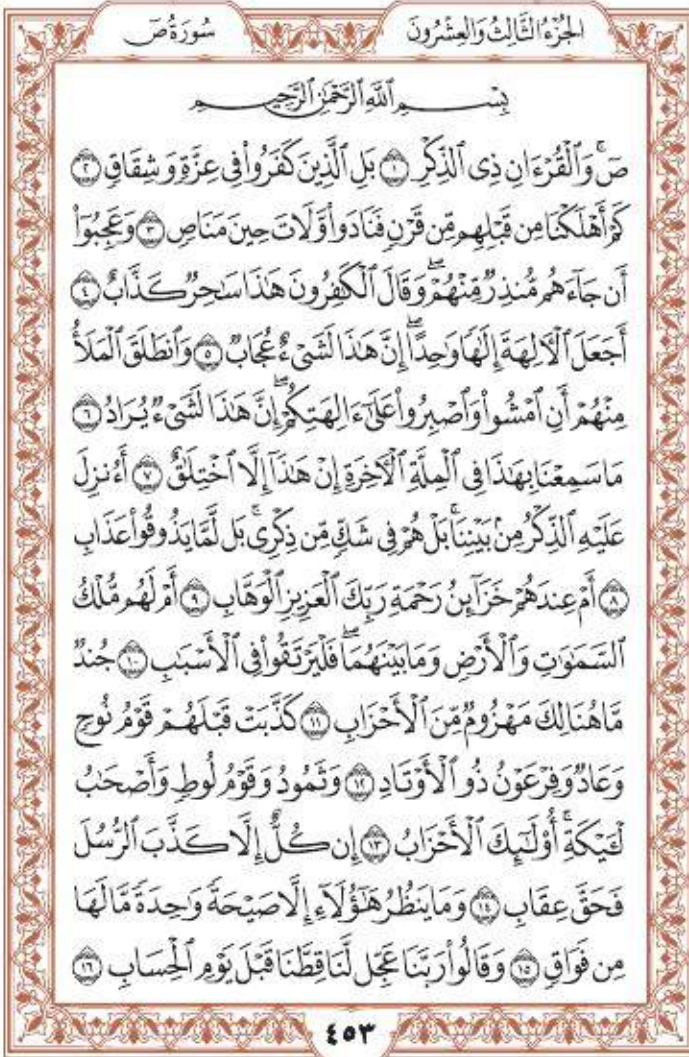 الجُزْءُ الثَّالِثُ وَالعِشْرُونَ
سُورَةُ صٓ
بِسْمِ ٱللَّهِ ٱلرَّحْمَٰنِ ٱلرَّحِيمِ
صٓۚ وَٱلْقُرْءَانِ ذِي ٱلذِّكْرِ ۝١ بَلِ ٱلَّذِينَ كَفَرُواْ فِي عِزَّةٖ وَشِقَاقٖ ۝٢
كَمْ أَهْلَكْنَا مِن قَبْلِهِم مِّن قَرْنٖ فَنَادَواْ وَّلَاتَ حِينَ مَنَاصٖ ۝٣ وَعَجِبُوٓاْ
أَن جَآءَهُم مُّنذِرٞ مِّنْهُمْۖ وَقَالَ ٱلْكَٰفِرُونَ هَٰذَا سَٰحِرٞ كَذَّابٌ ۝٤
أَجَعَلَ ٱلْأٓلِهَةَ إِلَٰهٗا وَٰحِدًاۖ إِنَّ هَٰذَا لَشَيْءٌ عُجَابٞ ۝٥ وَٱنطَلَقَ ٱلْمَلَأُ
مِنْهُمْ أَنِ ٱمْشُواْ وَٱصْبِرُواْ عَلَىٰٓ ءَالِهَتِكُمْۖ إِنَّ هَٰذَا لَشَيْءٞ يُرَادُ ۝٦
مَا سَمِعْنَا بِهَٰذَا فِي ٱلْمِلَّةِ ٱلْأٓخِرَةِ إِنْ هَٰذَآ إِلَّا ٱخْتِلَٰقٌ ۝٧ أَءُنزِلَ
عَلَيْهِ ٱلذِّكْرُ مِنۢ بَيْنِنَاۚ بَلْ هُمْ فِي شَكّٖ مِّن ذِكْرِيۚ بَل لَّمَّا يَذُوقُواْ عَذَابِ
۝٨ أَمْ عِندَهُمْ خَزَآئِنُ رَحْمَةِ رَبِّكَ ٱلْعَزِيزِ ٱلْوَهَّابِ ۝٩ أَمْ لَهُم مُّلْكُ
ٱلسَّمَٰوَٰتِ وَٱلْأَرْضِ وَمَا بَيْنَهُمَاۖ فَلْيَرْتَقُواْ فِي ٱلْأَسْبَٰبِ ۝١٠ جُندٞ
مَّا هُنَالِكَ مَهْزُومٞ مِّنَ ٱلْأَحْزَابِ ۝١١ كَذَّبَتْ قَبْلَهُمْ قَوْمُ نُوحٖ
وَعَادٞ وَفِرْعَوْنُ ذُو ٱلْأَوْتَادِ ۝١٢ وَثَمُودُ وَقَوْمُ لُوطٖ وَأَصْحَٰبُ
لْـَٔيْكَةِۚ أُوْلَٰٓئِكَ ٱلْأَحْزَابُ ۝١٣ إِن كُلٌّ إِلَّا كَذَّبَ ٱلرُّسُلَ
فَحَقَّ عِقَابِ ۝١٤ وَمَا يَنظُرُ هَٰٓؤُلَآءِ إِلَّا صَيْحَةٗ وَٰحِدَةٗ مَّا لَهَا
مِن فَوَاقٖ ۝١٥ وَقَالُواْ رَبَّنَا عَجِّل لَّنَا قِطَّنَا قَبْلَ يَوْمِ ٱلْحِسَابِ ۝١٦
٤٥٣